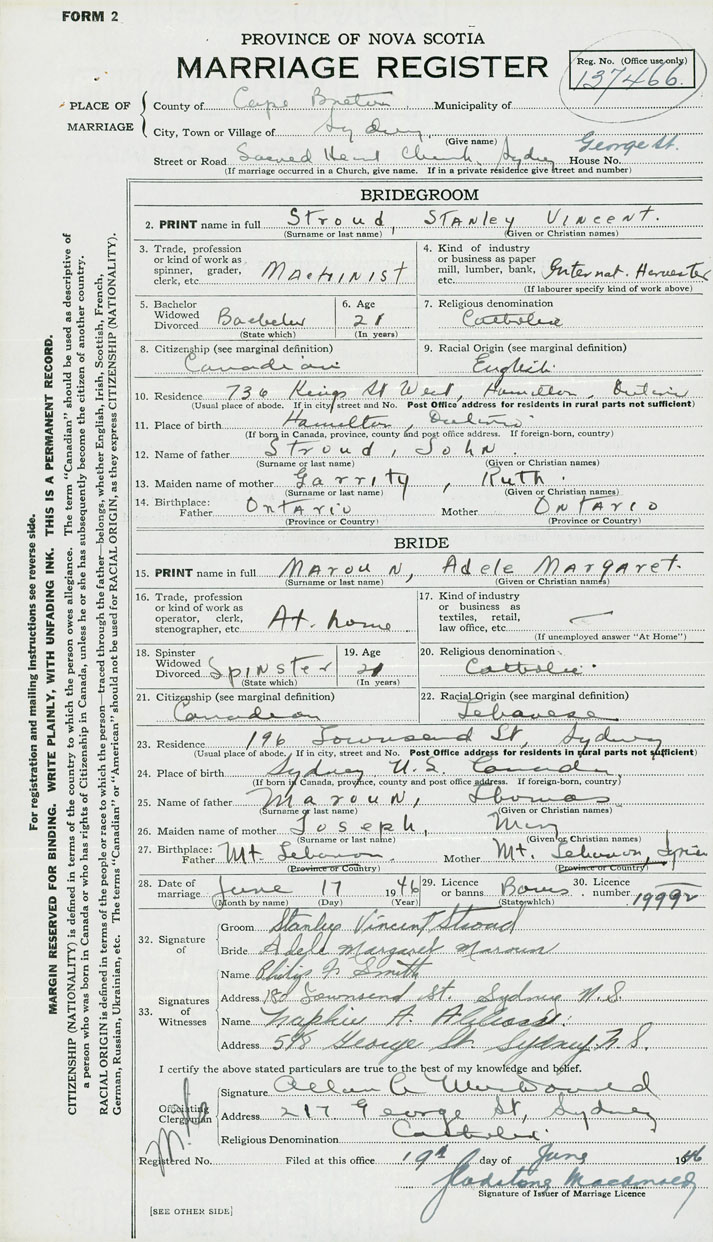 FORM 2
PROVINCE OF NOVA SCOTIA
MARRIAGE REGISTER
Reg. No. (Office use only)
137466.
PLACE OF MARRIAGE
County of Cape Breton Municipality of
City, Town or Village of Sydney
(Give name)
George St.
Street or Road Sacred Heart Church, Sydney House No.
(If marriage occurred in a Church, give name. If in a private residence give street and number)
BRIDEGROOM
2. PRINT name in full Stroud, Stanley Vincent.
(Surname or last name) (Given or Christian names)
3. Trade, profession or kind of work as spinner, grader, clerk, etc. Machinist
4. Kind of industry or business as paper mill, lumber, bank, etc. Internat. Harvester
(If labourer specify kind of work above)
5. Bachelor Widowed Divorced Bachelor
(State which)
6. Age 21
(In years)
7. Religious denomination
Catholic
8. Citizenship (see marginal definition)
Canadian
9. Racial Origin (see marginal definition)
English
10. Residence 736 Kings St West, Hamilton, Ontario
(Usual place of abode. If in city, street and No. Post Office address for residents in rural parts not sufficient)
11. Place of birth Hamilton, Ontario
(If born in Canada, province, county and post office address. If foreign-born, country)
12. Name of father Stroud, John.
(Surname or last name) (Given or Christian names)
13. Maiden name of mother Garrity, Ruth.
(Surname or last name) (Given or Christian names)
14. Birthplace: Father Ontario Mother Ontario
(Province or Country) (Province or Country)
BRIDE
15. PRINT name in full Maroun, Adele Margaret.
(Surname or last name) (Given or Christian names)
16. Trade, profession or kind of work as operator, clerk, stenographer, etc. At home
17. Kind of industry or business as textiles, retail, law office, etc. —
(If unemployed answer "At Home")
18. Spinster Widowed Divorced Spinster
(State which)
19. Age 21
(In years)
20. Religious denomination
Catholic
21. Citizenship (see marginal definition)
Canadian
22. Racial Origin (see marginal definition)
Lebanese
23. Residence 196 Townsend St, Sydney
(Usual place of abode, If in city, street and No. Post Office address for residents in rural parts not sufficient)
24. Place of birth Sydney N.S. Canada
(If born in Canada, province, county and post office address. If foreign-born, country)
25. Name of father Maroun, Thomas
(Surname or last name) (Given or Christian names)
26. Maiden name of mother Joseph, Mary
(Surname or last name) (Given or Christian names)
27. Birthplace: Father Mt Lebanon. Mother Mt. Lebanon, Syria
(Province or Country) (Province or Country)
28. Date of marriage June 17 1946
(Month by name) (Day) (Year)
29. Licence or banns Banns
(State which)
30. Licence number
32. Signature of
Groom Stanley Vincent Stroud
Bride Adele Margaret Maroun
33. Signatures of Witnesses
Name Philip Smith
Address 180 Townsend St. Sydney N.S.
Name A.
Address 598 George St. Sydney N.S.
I certify the above stated particulars are true to the best of my knowledge and belief.
Officiating Clergyman
Signature Allan MacDonald
Address 217 George St, Sydney
Religious Denomination Catholic.
Registered No. Filed at this office 19th day of June 1946
Gladstone Macdonald
Signature of Issuer of Marriage Licence
[SEE OTHER SIDE]
For registration and mailing instructions see reverse side.
MARGIN RESERVED FOR BINDING. WRITE PLAINLY, WITH UNFADING INK. THIS IS A PERMANENT RECORD.
CITIZENSHIP (NATIONALITY) is defined in terms of the country to which the person owes allegiance. The term "Canadian" should be used as descriptive of
a person who was born in Canada or who has rights of Citizenship in Canada, unless he or she has subsequently become the citizen of another country.
RACIAL ORIGIN is defined in terms of the people or race to which the person—traced through the father—belongs, whether English, Irish, Scottish, French,
German, Russian, Ukrainian, etc. The terms "Canadian" or "American" should not be used for RACIAL ORIGIN, as they express CITIZENSHIP (NATIONALITY).